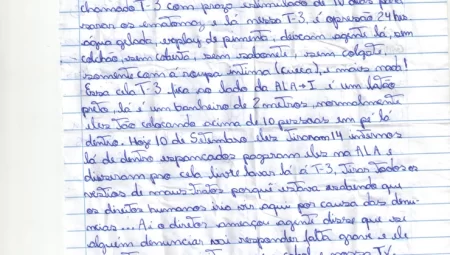 chamado T-3 com prazo estimulado de 10 dias para
sarar os ematomas, e lá nessa T-3, é opressão 24 hrs
água gelada, esplay de pimenta, deixam agente lá, sem
colchão, sem coberta, sem sabonete, sem colgate,
somente com a roupa intima (cueca), e mais nada!
Essa cela T-3 fica ao lado da ALA-I é um latão
preto, lá é um banheiro de 2 metros, normalmente
eles tão colocando acima de 10 pessoas em pé lá
dentro. Hoje 10 de Setembro eles tiraram 14 internos
lá de dentro espancados pegaram eles na ALA e
disseram pro cela livre lavar lá a T-3, tirar todos os
vestios de maus tratos porquê estava sabendo que
os direitos humanos iria vir aqui por causa das denu-
ncias... Ai o diretor ameaçou agente disse que se
alguém denunciar vai responder falta grave e ele
e nossa TV.